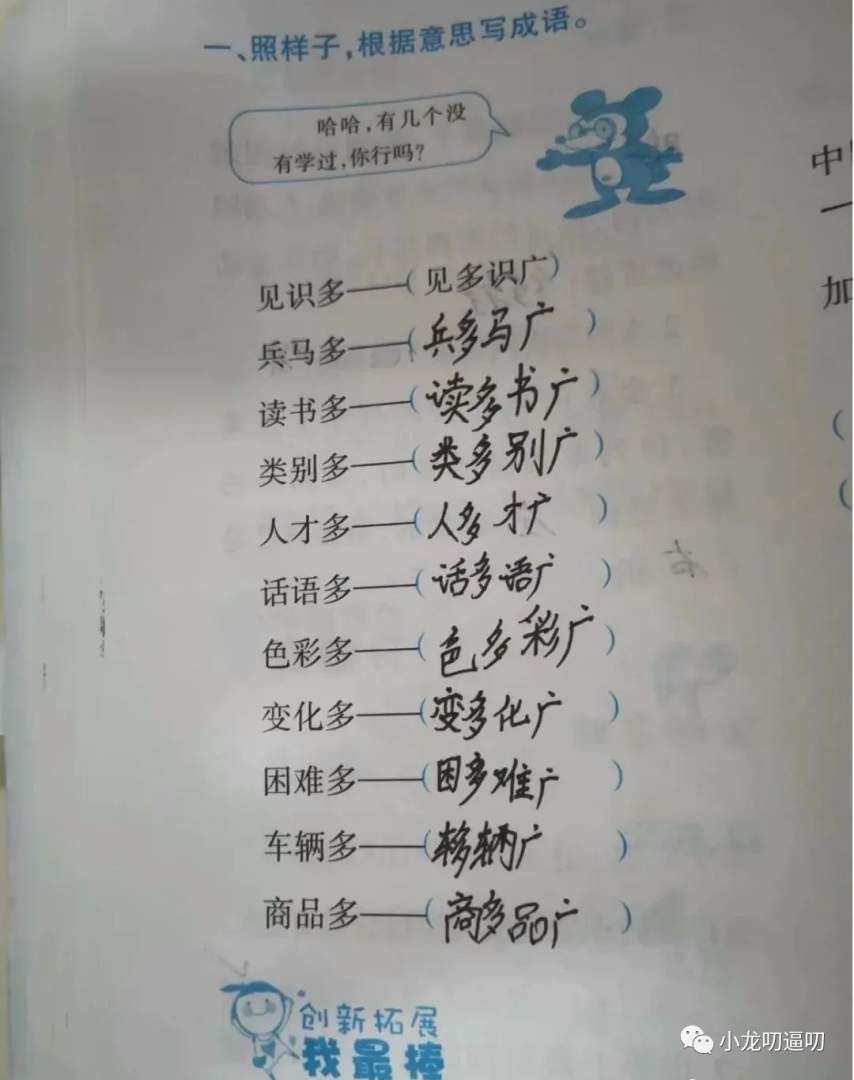 一、照样子，根据意思写成语。
哈哈，有几个没
有学过，你行吗？
见识多——（见多识广）
兵马多——（兵多马广）
读书多——（读多书广）
类别多——（类多别广）
人才多——（人多才广）
话语多——（话多语广）
色彩多——（色多彩广）
变化多——（变多化广）
困难多——（困多难广）
车辆多——（车多辆广）
商品多——（商多品广）
创新拓展
我最棒
中
一
加
（
（
小龙叨逼叨